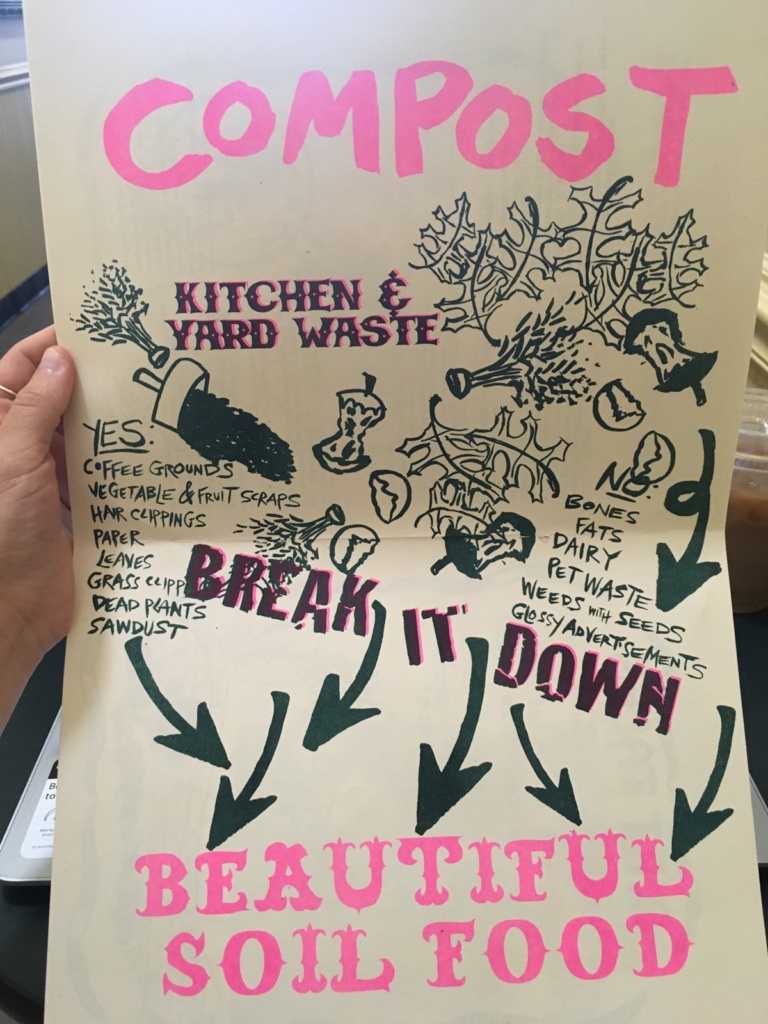 COMPOST
KITCHEN &
YARD WASTE
YES:
COFFEE GROUNDS
VEGETABLE & FRUIT SCRAPS
HAIR CLIPPINGS
PAPER
LEAVES
GRASS
DEAD PLANTS
SAWDUST
NO:
BONES
FATS
DAIRY
PET WASTE
WEEDS WITH SEEDS
GLOSSY ADVERTISEMENTS
BREAK IT DOWN
BEAUTIFUL
SOIL FOOD